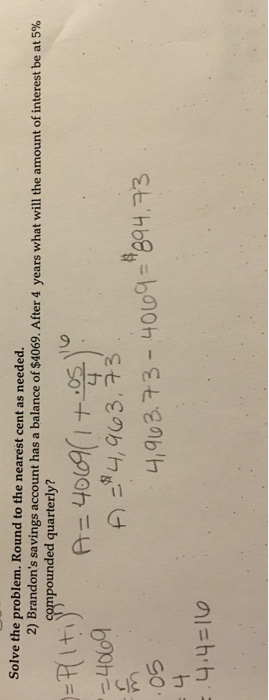 Solve the problem. Round to the nearest cent as needed.
2) Brandon's savings account has a balance of $4069. After 4 years what will the amount of interest be at 5%
compounded quarterly?
=P(1+i)ⁿ
A=4069(1+.05/4)¹⁶
=4069
A=$4,963.73
.05
4,963.73-4069=$894.73
4
4.4=16